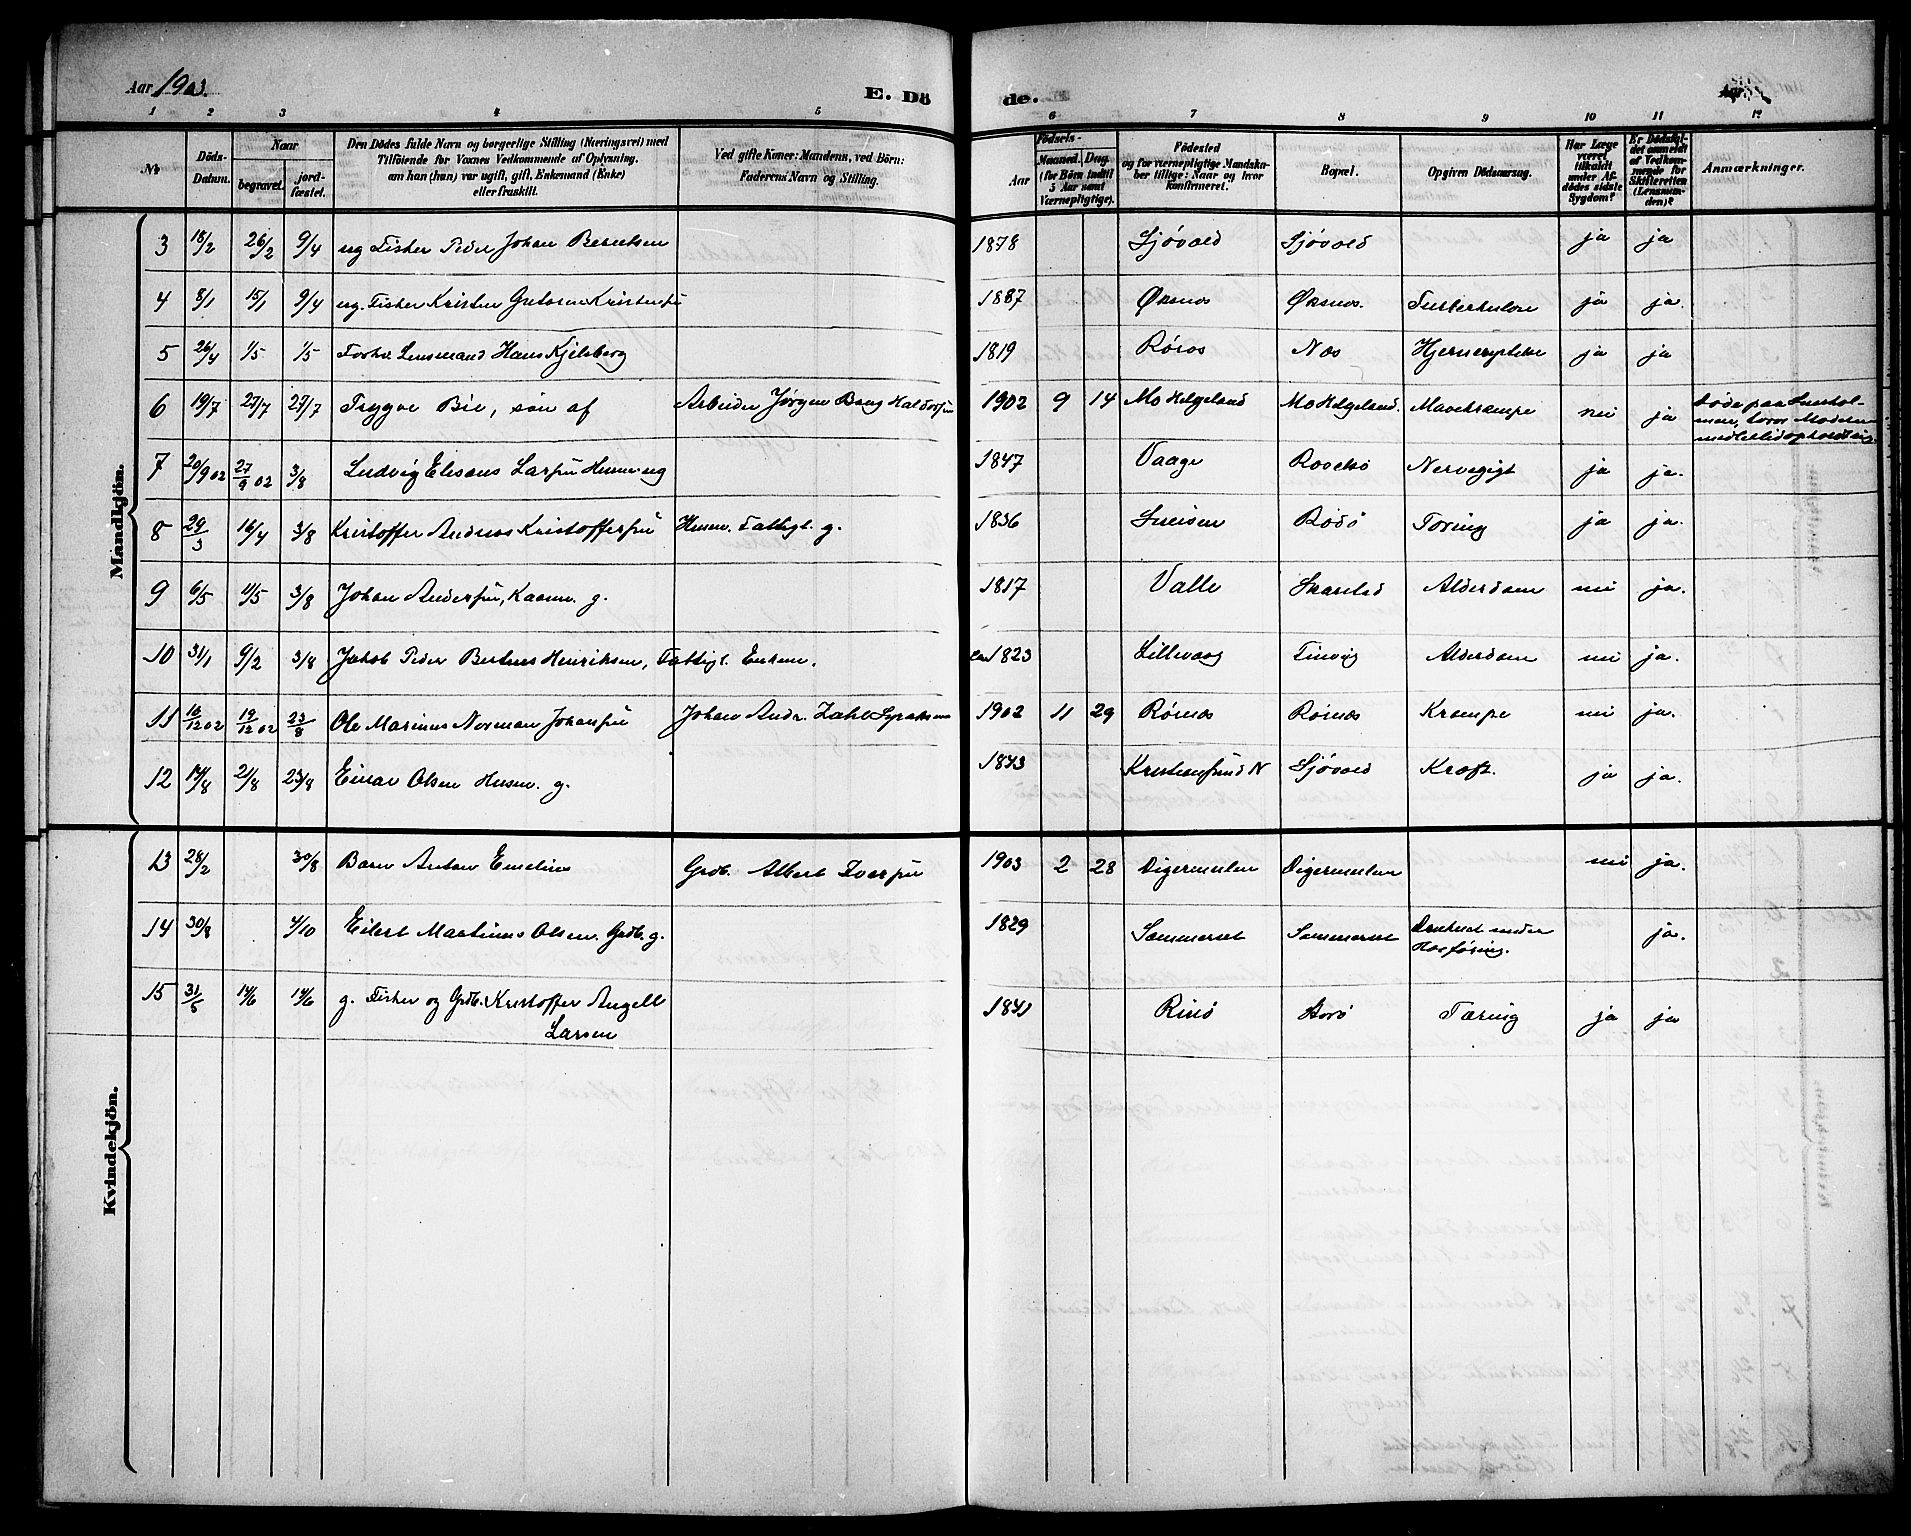 Aar 1903.
E. Dö de.
Aar
1 2 3 4 5 6 7 8 9 10 11 12
№
Döds-Datum.
Naar
begravet.
jordfæstet.
Den Dödes fulde Navn og borgerlige Stilling (Næringsvei) med
Tilföiende for Voxnes Vedkommende af Oplysning,
om han (hun) var ugift, gift, Enkemand (Enke)
eller fraskilt.
Ved gifte Koner: Mandens, ved Börn:
Faderens Navn og Stilling.
Födsels-
Aar
Maaned. Dag.
(for Börn indtil
5 Aar samt
Værnepligtige).
Födested
og for værnepligtige Mandska-
ber tillige: Naar og hvor
konfirmeret.
Bopæl.
Opgiven Dödsaarsag.
Har Læge
været
tilkaldt
under Af-
dödes sidste
Sygdom?
Er Dödsfal-
det anmeldt
af Vedkom-
mende for
Skifteretten
(Lensman-
den)?
Anmærkninger.
Mandkjön.
3 18/2 26/2 9/4 ug Fisker Peder Johan Berielsen 1878 Sjøvold Sjøvold ja ja
4 8/1 15/1 9/4 ug. Fisker Kristen Kristensen 1887 Øksnes Øksnes. Tuberkulose ja ja.
5 26/4 1/5 1/5 Forhv. Lensmand Hans Kjelsberg 1819 Røros Næs ja ja
6 19/7 27/7 27/7 Trygve Bie, søn af Arbeider Jørgen Bang Haldorsen 1902 9 14 Mo Helgeland Mo Helgeland. Mavekrampe nei ja Døde paa Svolvær
7 20/9 02 27/9 02 3/8 Ludvig Elisæus Larsen Husm ug 1847 Vaage ja ja.
8 29/3 16/4 3/8 Kristoffer Andreas Kristoffersen Husm. Fattigl. g. 1836 Rødø Tæring ja ja.
9 6/5 11/5 3/8 Johan Andersen, Kaarm. g. 1817 Valle Skarstad Alderdom nei ja.
10 31/1 9/2 3/8 Jakob Peder Henriksen, Fattigl. Enkem. 1823 Lillevaag Finvig Alderdom nei ja.
11 16/12 02 19/12 02 23/8 Ole Marinus Norman Johansen Johan Andr. Zahl 1902 11 29 Krampe nei ja.
12 14/8 21/8 23/8 Einar Olsen Husm. g. 1843 Kristiansund N Sjøvold Kræft. ja ja.
Kvindekjön.
13 28/2 30/8 Barn Anton Emelius Grdb. Albert Iversen 1903 2 28 Digermulen Digermulen nei ja.
14 30/8 4/10 Eilert Martinus Olsen. Grdb. g. 1829 Sommerset Sommerset Druknet under
ja.
15 31/5 14/6 14/6 g. Fisker og Grdb. Kristoffer Angell
Larsen 1841 Risø Storø Tæring ja ja